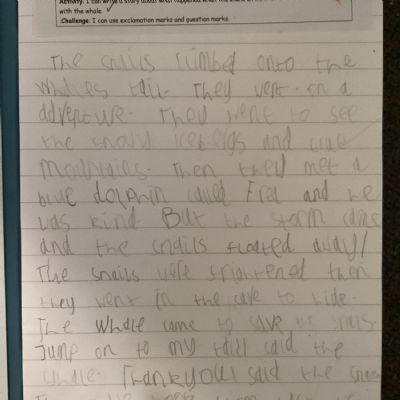 Activity: I can write a story about what happened when the snails
with the whale.
Challenge: I can use exclamation marks and question marks.
The snails climbed onto the
whales tail. They went on a
adventure. They went to see
the snowy icebergs and
mountains. Then they met a
blue dolphin called Fred and he
was kind But the storm came
and the snails floated away!
The snails were frightened then
they went in the cave to hide.
The Whale came to save the snails.
Jump on to my taill said the
whale. Thankyou! said the snails